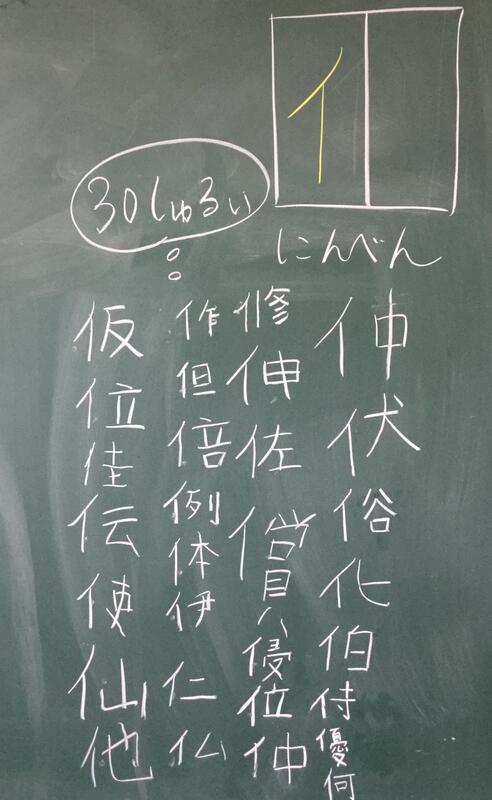 亻
にんべん
30しゅるい
伸伏俗化伯侍優何
修伸佐償侵位仲
作但倍例体伊仁仏
仮位佳伝使仙他